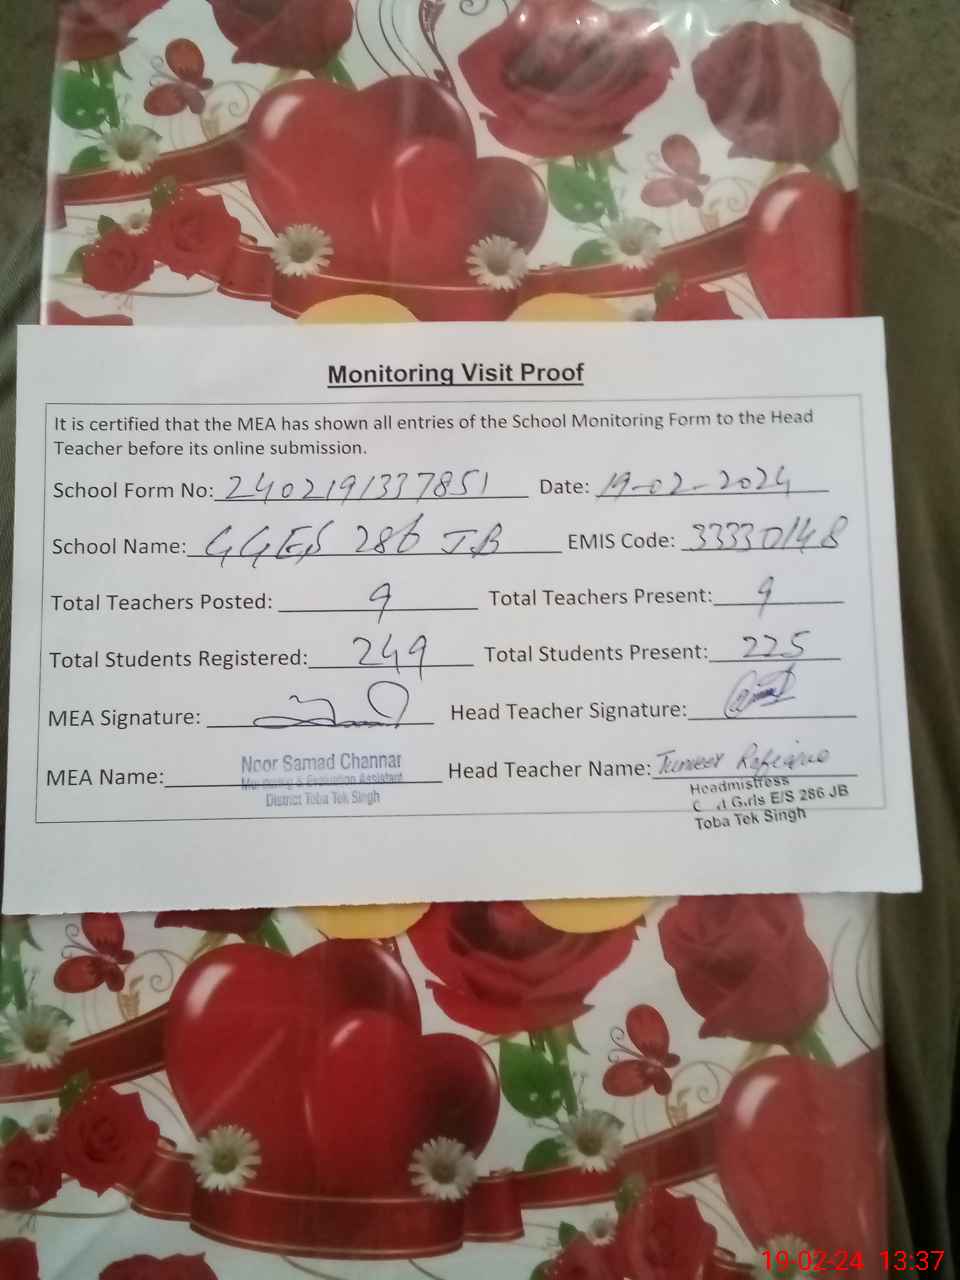 Monitoring Visit Proof
It is certified that the MEA has shown all entries of the School Monitoring Form to the Head
Teacher before its online submission.
School Form No: 2402191337851 Date: 19-02-2024
School Name: GGES 286 JB EMIS Code: 33330148
Total Teachers Posted: 9 Total Teachers Present: 9
Total Students Registered: 249 Total Students Present: 225
MEA Signature: Head Teacher Signature:
MEA Name: Noor Samad Channar Head Teacher Name:
Monitoring & Evaluation Assistant Headmistress
District Toba Tek Singh Girls E/S 286 JB
Toba Tek Singh
19-02-24 13:37